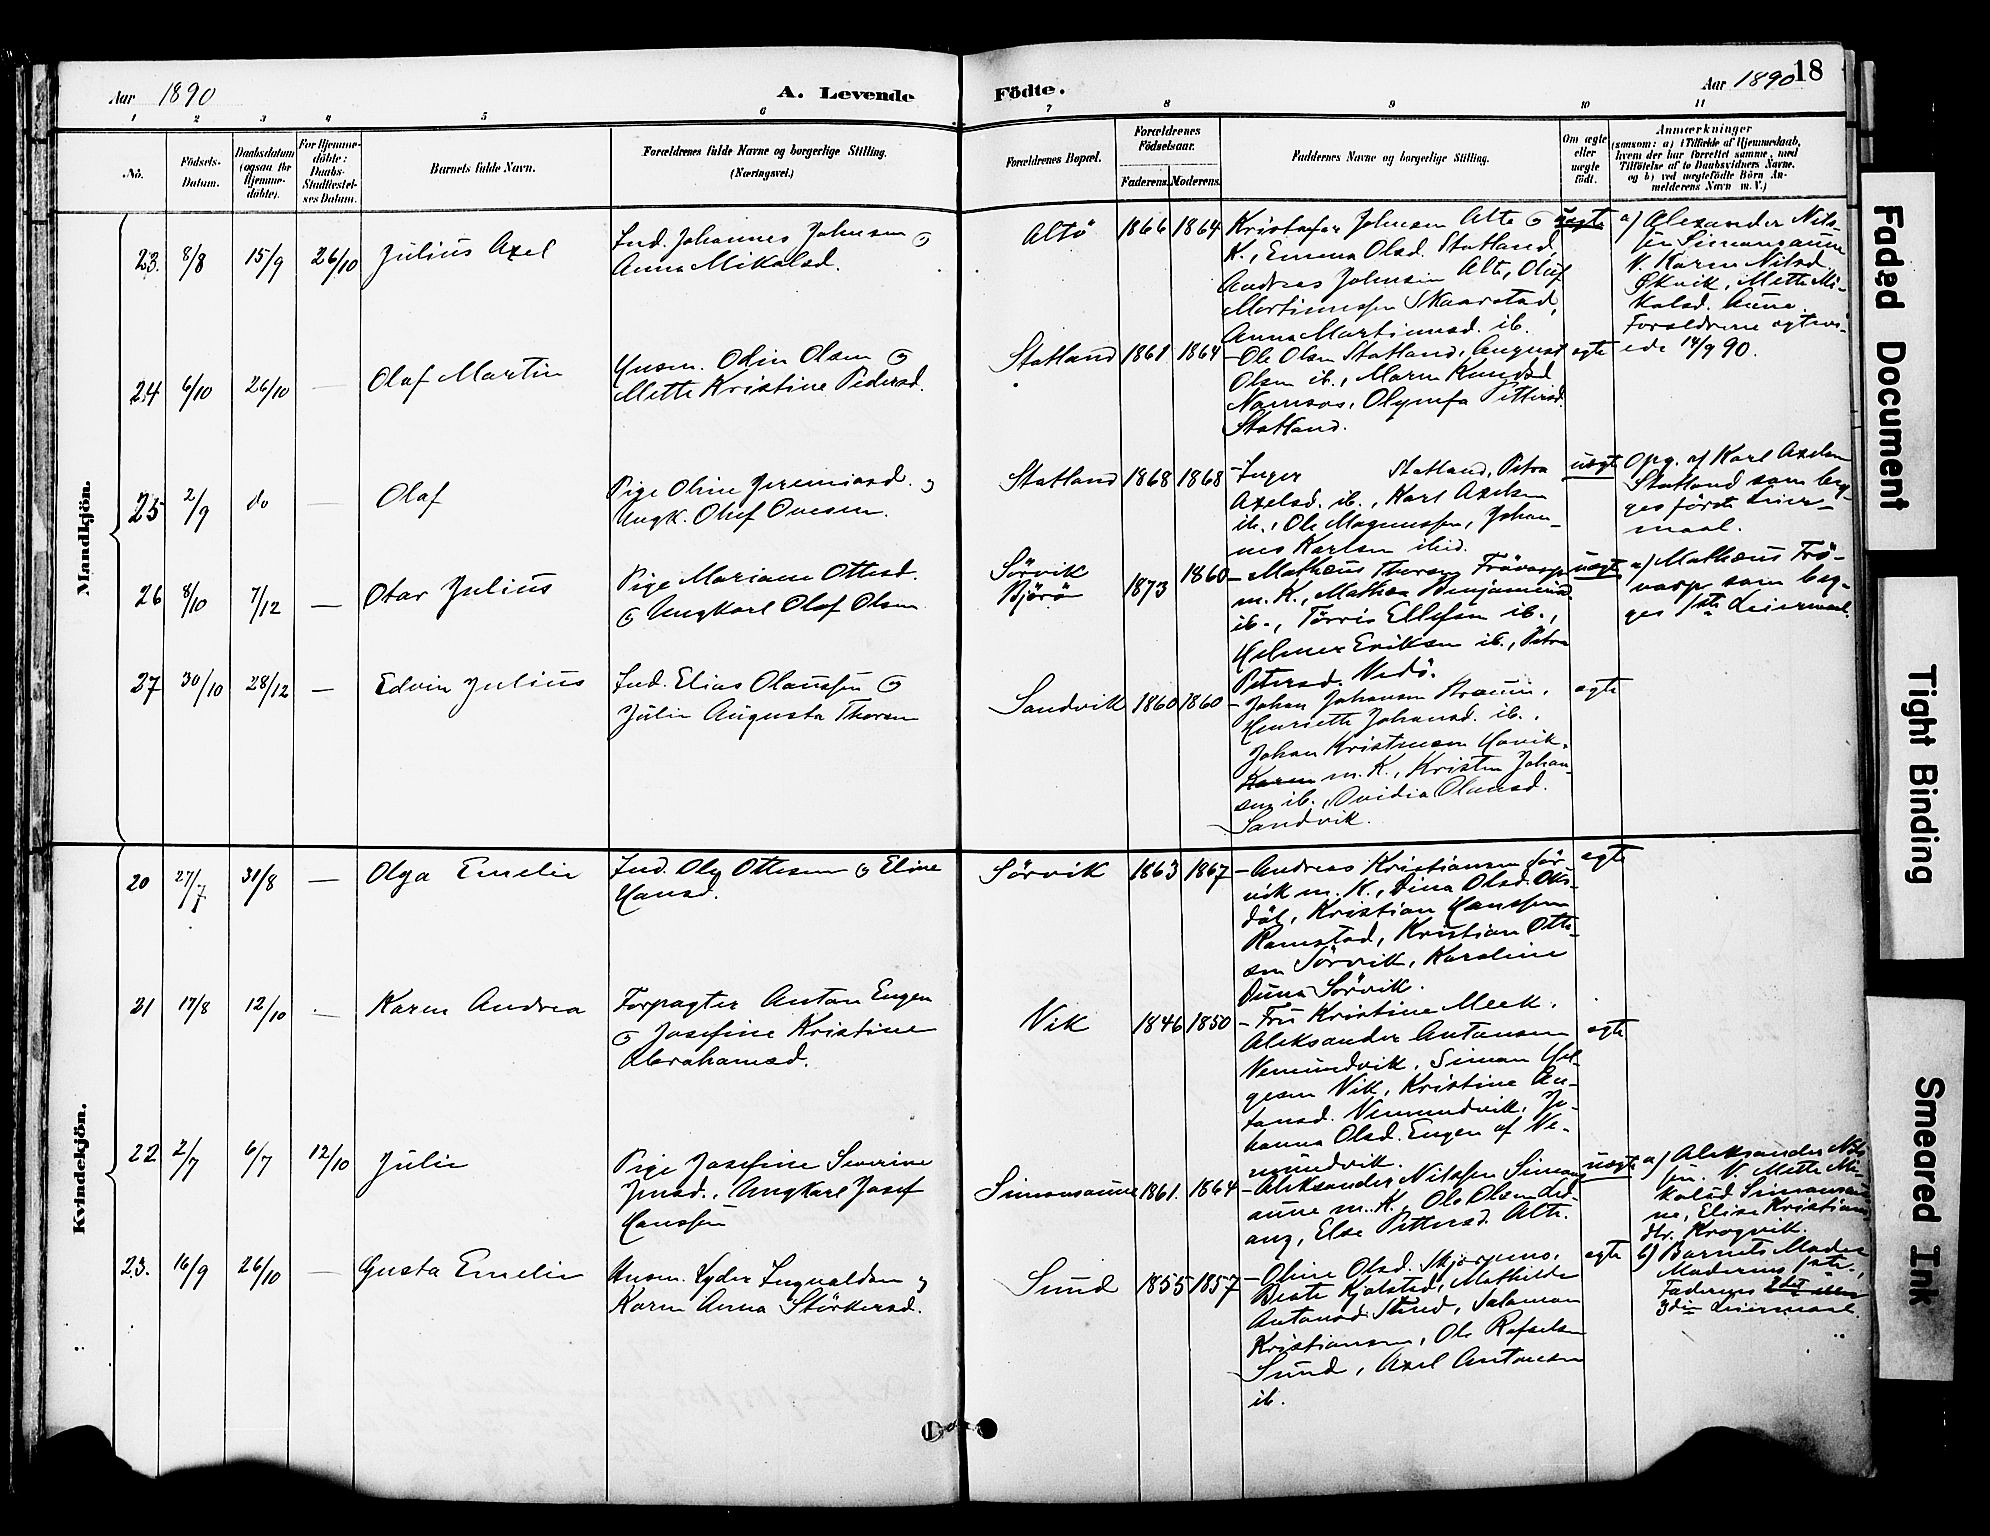 Aar 1890
A. Levende
Födte.
Aar 1890
18
1
2
3
4
5
6
7
8
9
10
11
No.
Födsels-
Datum.
Daabsdatum
(ogsaa for
Hjemme-
döbte).
For Hjemme-
döbte:
Daabs-
Stadfæstel-
ses Datum.
Barnets fulde Navn.
Forældrenes fulde Navne og borgerlige Stilling.
(Næringsvei.)
Forældrenes Bopæl.
Forældrenes
Födselsaar.
Faderens.
Moderens.
Faddernes Navne og borgerlige Stilling.
Om ægte
eller
uægte
født.
Anmærkninger
(saasom: a) i Tilfælde af Hjemmedaab,
hvem der har forrettet samme, med
Tilföielse af to Daabsvidners Navne,
og b) ved uægtefödte Börn An-
melderens Navn m. V.)
Mandkjön.
23.
8/8
15/9
26/10
Julius Axel
Ind. Johannes Johnsen og
Anna Mikalsd.
Altö
1866
1864
Kristofer Johnsen Alte og
K., Emma Olsd. Statland,
Andreas Johnsen Alte, Oluf
Martinussen Skaarstad,
Anna Martinusd. ib.
uægte
a) Alexander Nils-
sen Simonsaune
V. Karen Nilsd.
Økvik, Mette Mi-
kalsd. Aune.
Forældrene egtevi-
ede 14/9 90.
24
6/10
26/10
—
Olaf Martin
Husm. Odin Olsen og
Mette Kristine Pedersd.
Statland
1861
1864
— Ole Olsen Statland, August
Olsen ib., Maren Knudsd.
Namsos, Olymfa Pettersd.
Statland.
egte
25
2/9
do
—
Olaf
Pige Oline Jeremiasd. og
Ungk. Oluf Ovesen.
Statland
1868
1868
— Inger Statland, Petra
Axelsd. ib., Karl Axelsen
ib., Ole Magnussen, Johan-
nes Karlsen ibid.
uægte
Opg. af Karl Axelsen
Statland som beg-
ges förste Leier-
maal.
26
8/10
7/12
—
Otar Julius
Pige Mariane Ottesd.
og Ungkarl Olaf Olsen
Sörvik
Björö
1873
1860
— Mathæus Thorsen Frövarp
m. K., Mathea Benjaminsd.
ib., Törris Ellefsen ib.,
Helmer Eriksen ib., Petra
Petersd. Vedö.
uægte
a) Mathæus Frö-
varp som beg-
ges 1ste Leiermaal.
27
30/10
28/12
—
Edvin Julius
Ind. Elias Olaussen og
Julie Augusta Thorsen
Sandvik
1860
1860
— Johan Johansen Braun,
Henriette Johansd. ib.,
Johan Kristensen Havik,
Karen m. K., Kristen Johan-
sen ib., Ovidia Olausd.
Sandvik.
egte
Kvindekjön.
20
27/7
31/8
—
Olga Emelie
Ind. Ole Ottesen og Eline
Hansd.
Sörvik
1863
1867
— Andreas Kristiansen Sör-
vik m. K., Dina Olsd. Oks-
dal, Kristian Hanssen
Ramstad, Kristian Otte-
sen Sörvik, Karoline
Duna Sörvik.
egte
21
17/8
12/10
—
Karen Andrea
Forpagter Anton Engen
og Josefine Kristine
Abrahamsd.
Vik
1846
1850
— Fru Kristine Meek,
Aleksander Antonsen
Vemundvik, Simon Hel-
gesen Vik, Kristine An-
tonsd. Vemundvik, Jo-
hanna Olsd. Engen af Ve-
mundvik.
egte
22
2/7
6/7
12/10
Julie
Pige Josefine Severine
Jensd., Ungkarl Josef
Hanssen
Simonsaune
1861
1864
— Aleksander Nilssen Simons-
aune m. K., Ole Olsen Lid-
ang, Else Pettersd. Alte.
uægte
a) Aleksander Nils-
sen. V. Mette Mi-
kalsd. Simonsau-
ne, Elise Kristians-
dtr. Krogvik.
23.
16/9
26/10
—
Gusta Emelie
Husm. Peder Ingvaldsen og
Karen Anna Störkersd.
Sund
1855
1857
— Oline Olsd. Skjærmo,
Beate Kjølstad, Mathilde
Antonsd. Sund, Salamon
Kristiansen, Ole Rafaelsen
Sund, Axel Antonsen
ib.
egte
b) Barnets Moder
Moderens 1ste,
Faderens 2det
3die Leiermaal.
Faded Document
Tight Binding
Smeared Ink